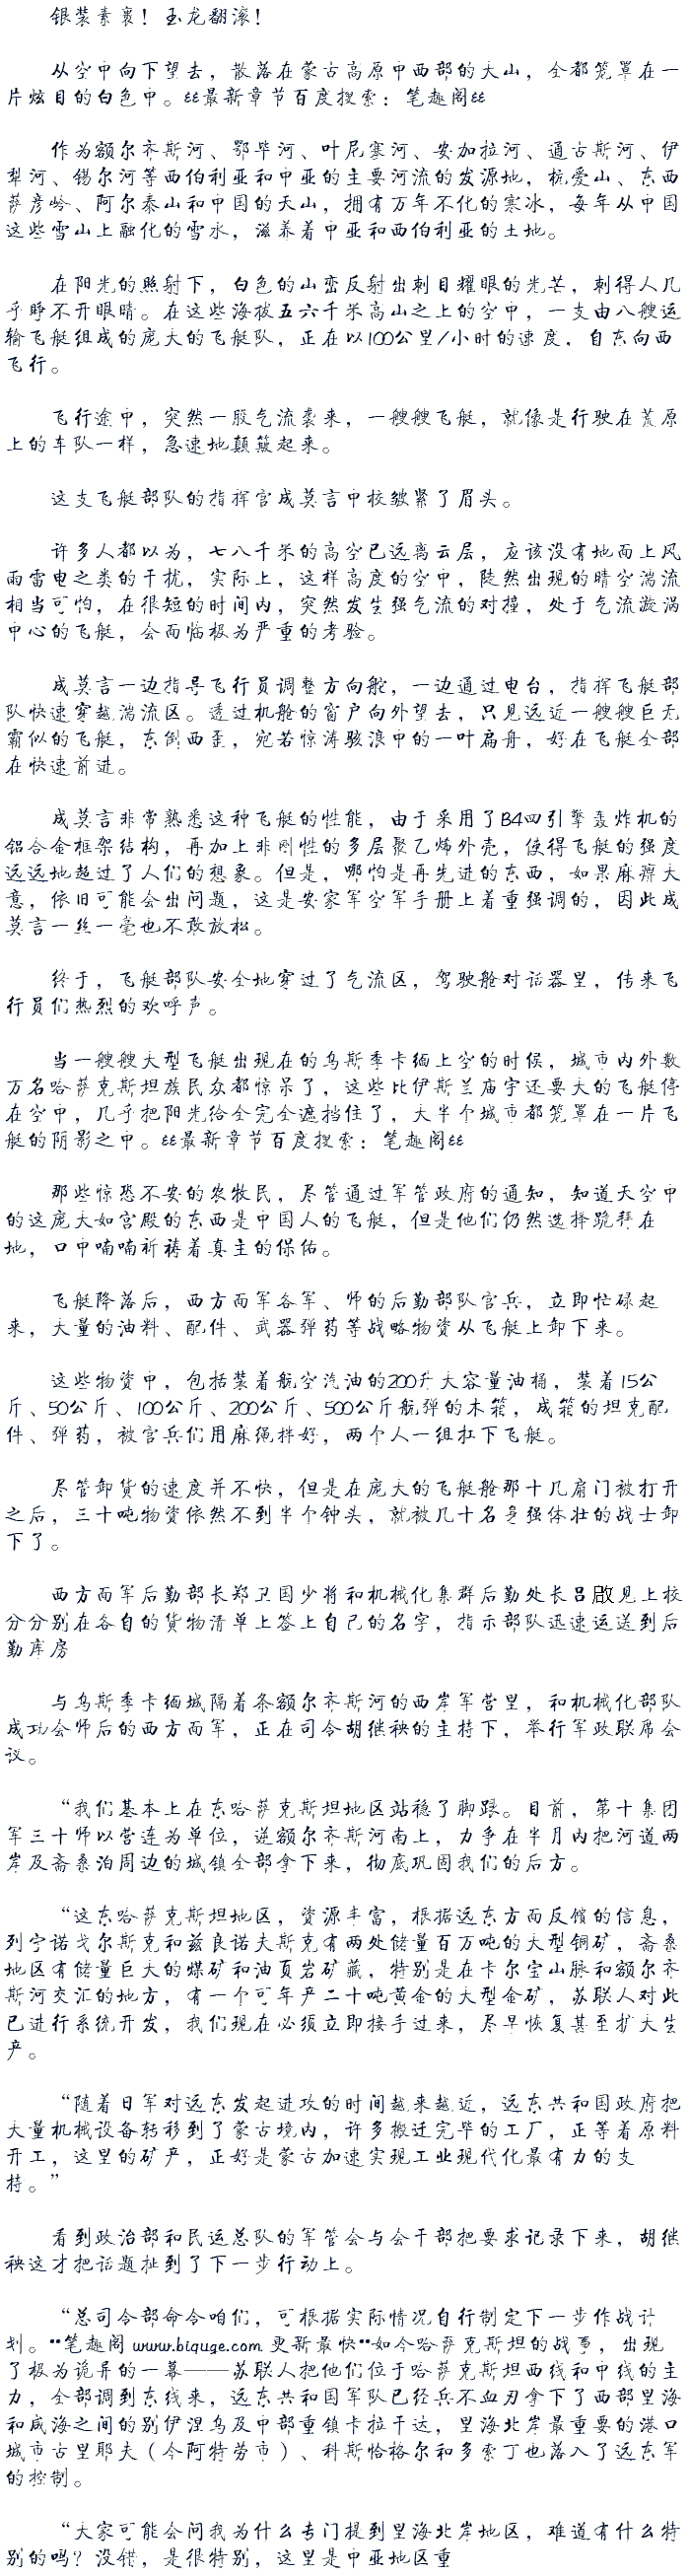 银装素裹！玉龙翻滚！
从空中向下望去，散落在蒙古高原中西部的大山，全都笼罩在一
片炫目的白色中。££最新章节百度搜索：笔趣阁££
作为额尔齐斯河、鄂毕河、叶尼塞河、安加拉河、通古斯河、伊
犁河、锡尔河等西伯利亚和中亚的主要河流的发源地，杭爱山、东西
萨彦岭、阿尔泰山和中国的天山，拥有万年不化的寒冰，每年从中国
这些雪山上融化的雪水，滋养着中亚和西伯利亚的土地。
在阳光的照射下，白色的山峦反射出刺目耀眼的光芒，刺得人几
乎睁不开眼睛。在这些海拔五六千米高山之上的空中，一支由八艘运
输飞艇组成的庞大的飞艇队，正在以100公里/小时的速度，自东向西
飞行。
飞行途中，突然一股气流袭来，一艘艘飞艇，就像是行驶在荒原
上的车队一样，急速地颠簸起来。
这支飞艇部队的指挥官成莫言中校皱紧了眉头。
许多人都以为，七八千米的高空已远离云层，应该没有地面上风
雨雷电之类的干扰，实际上，这样高度的空中，陡然出现的晴空湍流
相当可怕，在很短的时间内，突然发生强气流的对撞，处于气流漩涡
中心的飞艇，会面临极为严重的考验。
成莫言一边指导飞行员调整方向舵，一边通过电台，指挥飞艇部
队快速穿越湍流区。透过机舱的窗户向外望去，只见远近一艘艘巨无
霸似的飞艇，东倒西歪，宛若惊涛骇浪中的一叶扁舟，好在飞艇全部
在快速前进。
成莫言非常熟悉这种飞艇的性能，由于采用了B4四引擎轰炸机的
铝合金框架结构，再加上非刚性的多层聚乙烯外壳，使得飞艇的强度
远远地超过了人们的想象。但是，哪怕是再先进的东西，如果麻痹大
意，依旧可能会出问题，这是安家军空军手册上着重强调的，因此成
莫言一丝一毫也不敢放松。
终于，飞艇部队安全地穿过了气流区，驾驶舱对话器里，传来飞
行员们热烈的欢呼声。
当一艘艘大型飞艇出现在的乌斯季卡缅上空的时候，城市内外数
万名哈萨克斯坦族民众都惊呆了，这些比伊斯兰庙宇还要大的飞艇停
在空中，几乎把阳光给全完全遮挡住了，大半个城市都笼罩在一片飞
艇的阴影之中。££最新章节百度搜索：笔趣阁££
那些惊恐不安的农牧民，尽管通过军管政府的通知，知道天空中
的这庞大如宫殿的东西是中国人的飞艇，但是他们仍然选择跪拜在
地，口中喃喃祈祷着真主的保佑。
飞艇降落后，西方面军各军、师的后勤部队官兵，立即忙碌起
来，大量的油料、配件、武器弹药等战略物资从飞艇上卸下来。
这些物资中，包括装着航空汽油的200升大容量油桶，装着15公
斤、50公斤、100公斤、200公斤、500公斤航弹的木箱，成箱的坦克配
件、弹药，被官兵们用麻绳拌好，两个人一组扛下飞艇。
尽管卸货的速度并不快，但是在庞大的飞艇舱那十几扇门被打开
之后，三十吨物资依然不到半个钟头，就被几十名身强体壮的战士卸
下了。
西方面军后勤部长郑卫国少将和机械化集群后勤处长吕啟见上校
分分别在各自的货物清单上签上自己的名字，指示部队迅速运送到后
勤库房
与乌斯季卡缅城隔着条额尔齐斯河的西岸军营里，和机械化部队
成功会师后的西方面军，正在司令胡继秧的主持下，举行军政联席会
议。
“我们基本上在东哈萨克斯坦地区站稳了脚跟。目前，第十集团
军三十师以营连为单位，逆额尔齐斯河南上，力争在半月内把河道两
岸及斋桑泊周边的城镇全部拿下来，彻底巩固我们的后方。
“这东哈萨克斯坦地区，资源丰富，根据远东方面反馈的信息，
列宁诺戈尔斯克和兹良诺夫斯克有两处储量百万吨的大型铜矿，斋桑
地区有储量巨大的煤矿和油页岩矿藏，特别是在卡尔宝山脉和额尔齐
斯河交汇的地方，有一个可年产二十吨黄金的大型金矿，苏联人对此
已进行系统开发，我们现在必须立即接手过来，尽早恢复甚至扩大生
产。
“随着日军对远东发起进攻的时间越来越近，远东共和国政府把
大量机械设备转移到了蒙古境内，许多搬迁完毕的工厂，正等着原料
开工，这里的矿产，正好是蒙古加速实现工业现代化最有力的支
持。”
看到政治部和民运总队的军管会与会干部把要求记录下来，胡继
秧这才把话题扯到了下一步行动上。
“总司令部命令咱们，可根据实际情况自行制定下一步作战计
划。**笔趣阁 www.biquge.com 更新最快**如今哈萨克斯坦的战事，出现
了极为诡异的一幕——苏联人把他们位于哈萨克斯坦西线和中线的主
力，全部调到东线来，远东共和国军队已经兵不血刃拿下了西部里海
和咸海之间的别伊涅乌及中部重镇卡拉干达，里海北岸最重要的港口
城市古里耶夫（今阿特劳市）、科斯恰格尔和多索丁也落入了远东军
的控制。
“大家可能会问我为什么专门提到里海北岸地区，难道有什么特
别的吗？没错，是很特别，这里是中亚地区重